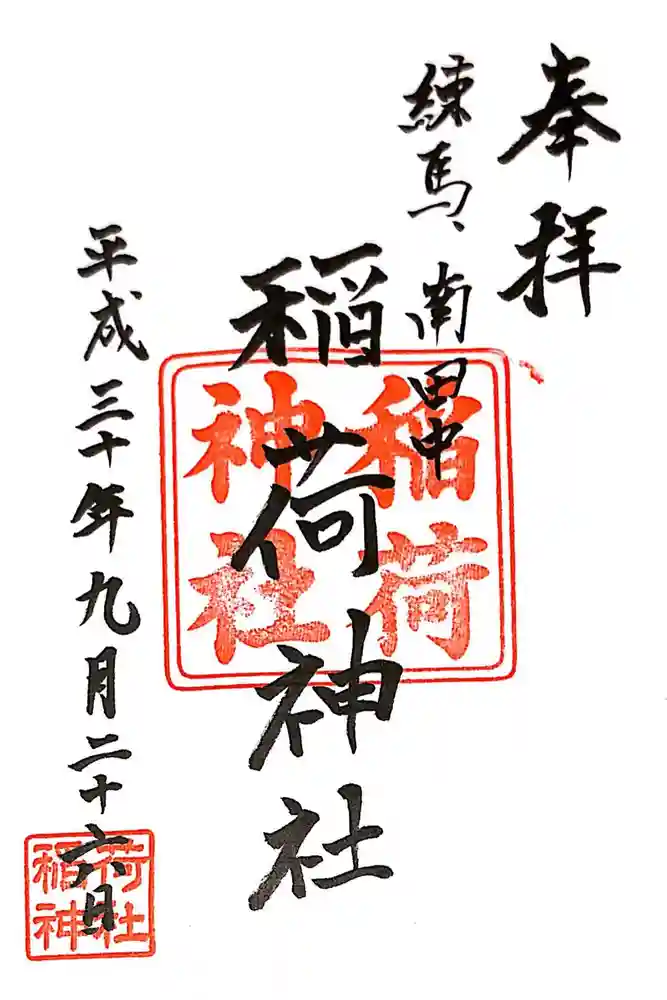 奉拝
練馬、南田中
稲荷神社
平成三十年九月二十六日
稲荷
神社
稲荷
神社